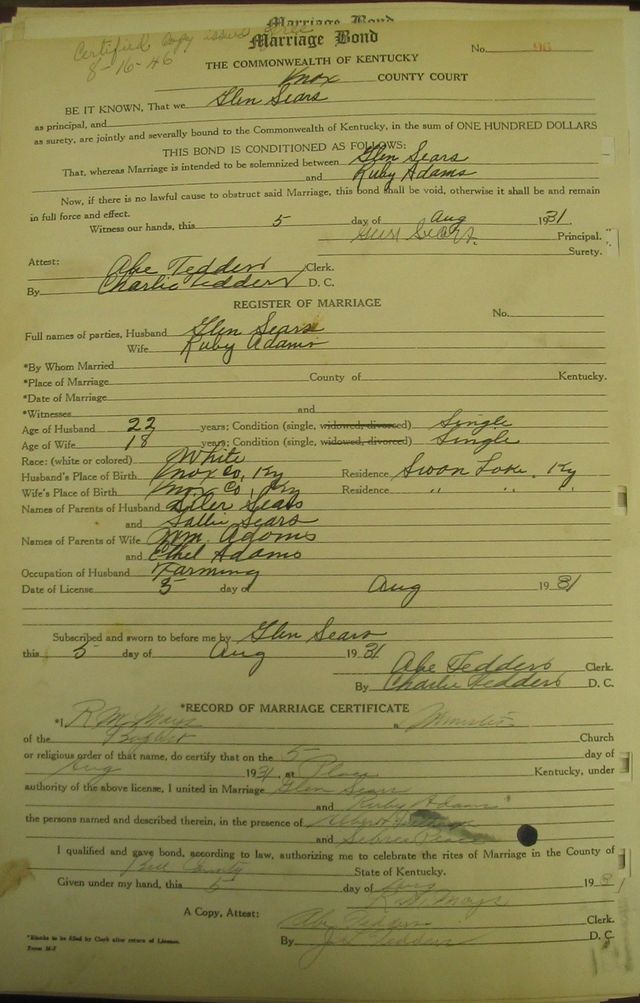 Marriage Bond
Certified Copy issued free
8-16-46
Marriage Bond
No. 96
THE COMMONWEALTH OF KENTUCKY
Knox COUNTY COURT
BE IT KNOWN, That we Glen Sears
as principal, and
as surety, are jointly and severally bound to the Commonwealth of Kentucky, in the sum of ONE HUNDRED DOLLARS
THIS BOND IS CONDITIONED AS FOLLOWS:
That, whereas Marriage is intended to be solemnized between Glen Sears
and Ruby Adams
Now, if there is no lawful cause to obstruct said Marriage, this bond shall be void, otherwise it shall be and remain
in full force and effect.
Witness our hands, this 5 day of Aug 1931
Sears Principal.
Surety.
Attest:
Abe Tedders Clerk.
By Charlie Tedders D. C.
REGISTER OF MARRIAGE
No.
Full names of parties, Husband Glen Sears
Wife Ruby Adams
*By Whom Married
*Place of Marriage County of Kentucky.
*Date of Marriage
*Witnesses and
Age of Husband 22 years; Condition (single, widowed, divorced) Single
Age of Wife 18 years; Condition (single, widowed, divorced) Single
Race: (white or colored) White
Husband's Place of Birth Knox Co, Ky Residence Swan Lake, Ky
Wife's Place of Birth Knox Co, Ky Residence " " "
Names of Parents of Husband Siler Sears
and Sallie Sears
Names of Parents of Wife Wm. Adams
and Ethel Adams
Occupation of Husband Farming
Date of License 5 day of Aug 1931
Subscribed and sworn to before me by Glen Sears
this 5 day of Aug 1931
Abe Tedders Clerk.
By Charlie Tedders D. C.
*RECORD OF MARRIAGE CERTIFICATE
*I R. M. Mays a Minister
of the Baptist Church
or religious order of that name, do certify that on the 5 day of
Aug 1931, at Kentucky, under
authority of the above license, I united in Marriage Glen Sears
and Ruby Adams
the persons named and described therein, in the presence of Albert
and
I qualified and gave bond, according to law, authorizing me to celebrate the rites of Marriage in the County of
Bell County State of Kentucky.
Given under my hand, this 5 day of Aug 1931
R. M. Mays
A Copy, Attest: Abe Tedders Clerk.
By Tedders D. C.
*Blanks to be filled by Clerk after return of License.